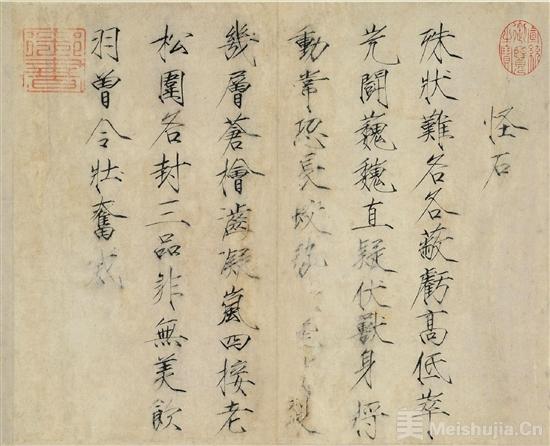 怪石
殊狀難名各蔽虧高低萃
屼鬪巍巍直疑伏獸身将
動常恐長蛟
幾層蒼檜凝嵐四接老
松圍各封三品非無美飲
羽曾令壯奮威
美 Meishujia.Cn